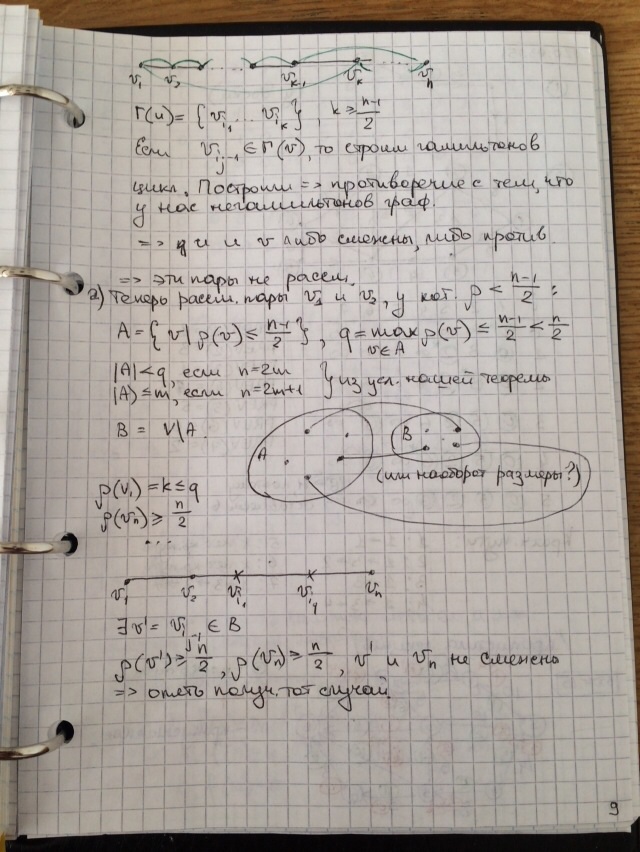 v₁ v₂ ... v_{k-1} v_k v_n
Γ(u) = {v_{i_1} ... v_{i_k}}, k ≥ (n-1)/2
Если v_{i_j-1} ∈ Γ(v), то строим гамильтонов
цикл. Построили => противоречие с тем, что
у нас негамильтонов граф.
=> u и v либо смежны, либо против.
=> эти пары не рассм.
2) Теперь рассм. пары v₁ и v₂, у кот. ρ < (n-1)/2 :
A = {v | ρ(v) ≤ (n-1)/2}, q = max_{v∈A} ρ(v) ≤ (n-1)/2 < n/2
|A| < q, если n=2m
|A| ≤ m, если n=2m+1 } из усл. нашей теоремы
B = V\A.
A B
(или наоборот размеры?)
ρ(v₁) = k ≤ q
ρ(v_n) ≥ n/2
...
v₁ v₂ v_{i_1} v_{i_j} v_n
∃ v' = v_{i_j-1} ∈ B
ρ(v') ≥ n/2, ρ(v_n) ≥ n/2, v' и v_n не смежны
=> опять получ. тот случай.
9